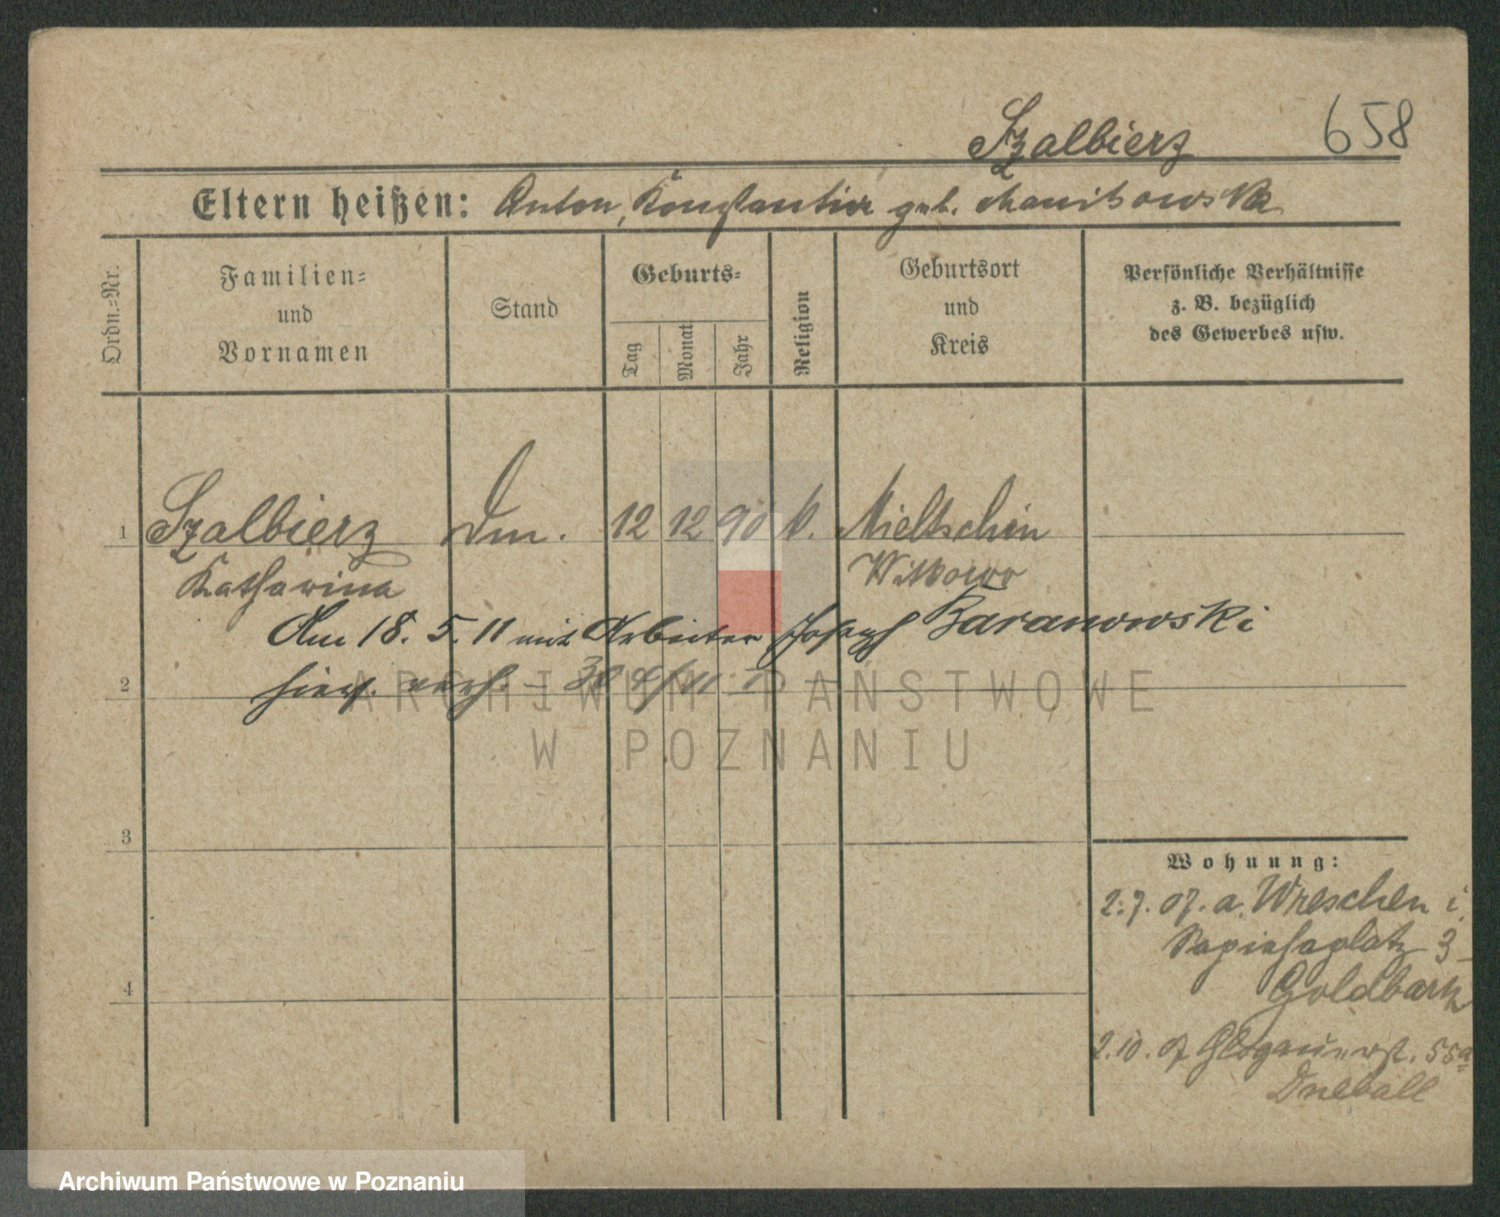 658
Szalbierz
Eltern heißen: Anton, Konstantia geb. Manikowska
Ordn.-Nr.
Familien-
und
Vornamen
Stand
Geburts-
Tag
Monat
Jahr
Religion
Geburtsort
und
Kreis
Persönliche Verhältnisse
z. B. bezüglich
des Gewerbes usw.
1 Szalbierz Dm. 12 12 90 k. Mieltschin
Katharina Witkowo
Am 18. 5. 11 mit Arbeiter Joseph Baranowski
2 hier verh.
3
4
Wohnung:
2.7. 07. a. Wreschen i.
Sapiehaplatz 3
Goldbark
2.10. 07 Glogauerst. 55a
ARCHIWUM PAŃSTWOWE
W POZNANIU
Archiwum Państwowe w Poznaniu